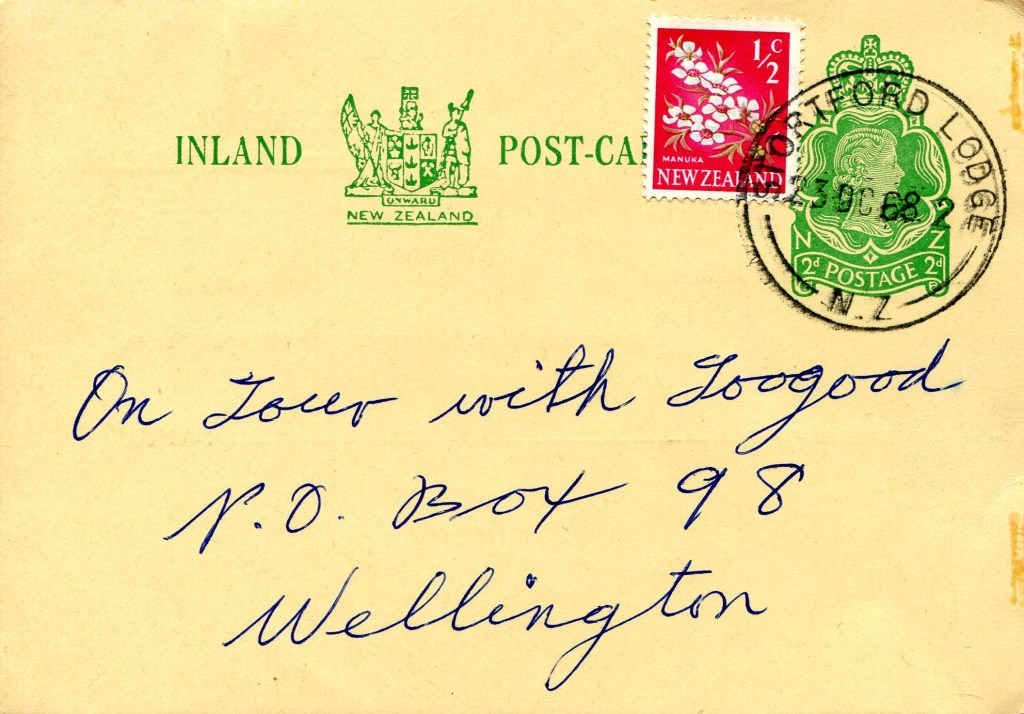 INLAND POST-CA
ONWARD
NEW ZEALAND
1/2 c
MANUKA
NEW ZEALAND
STORTFORD LODGE
23 DC 68 2
N.Z.
N Z
2d POSTAGE 2d
On Tour with Toogood
P.O. Box 98
Wellington